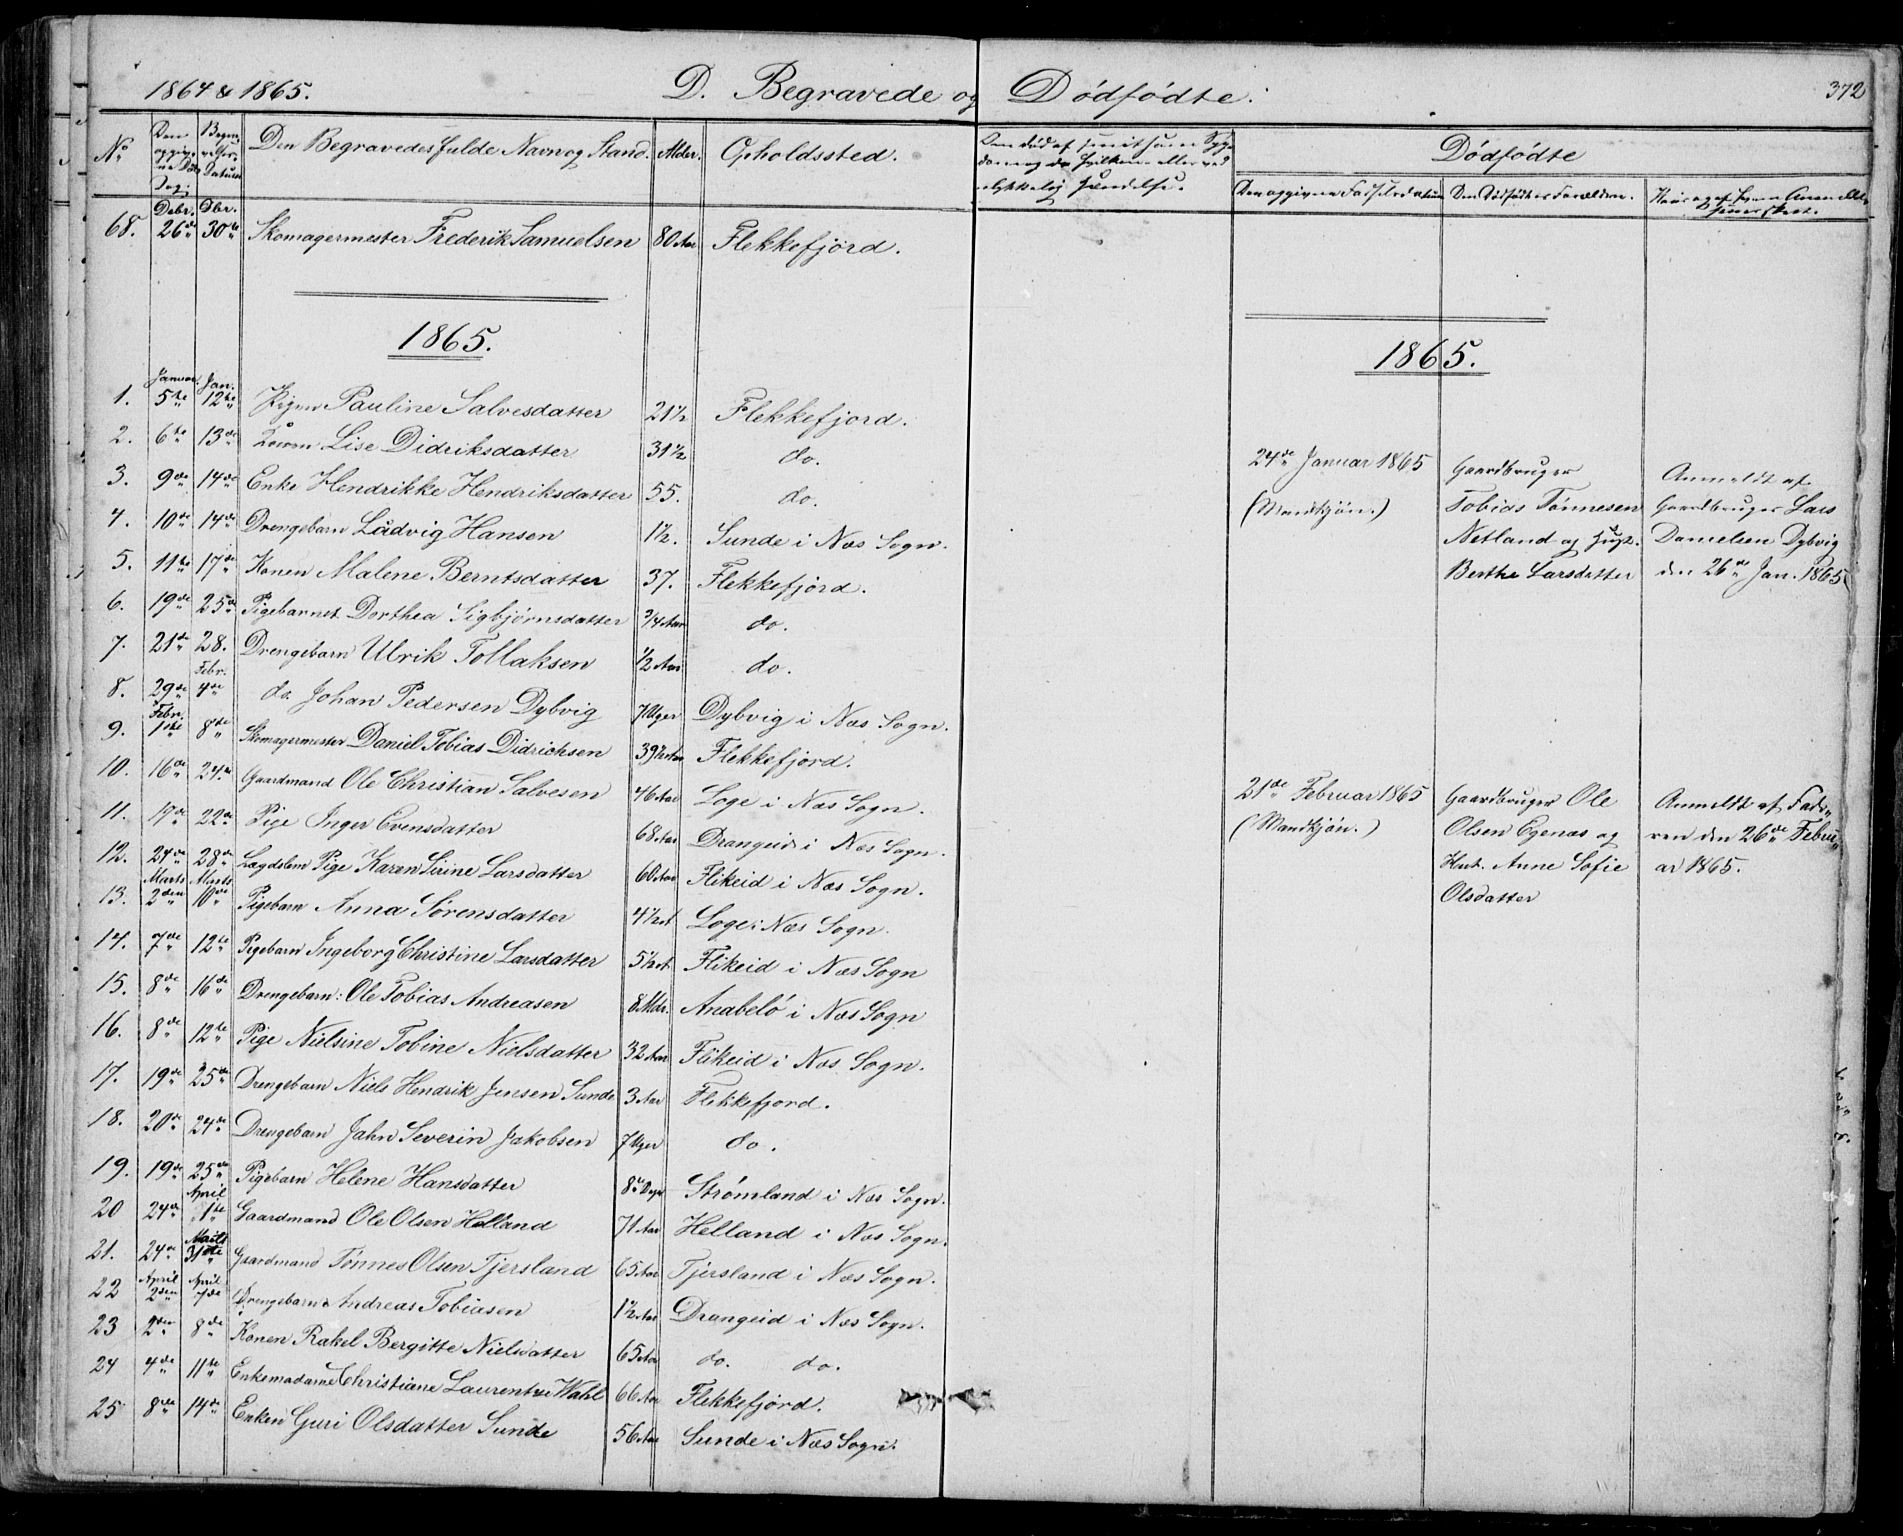 1864 & 1865. D. Begravede og Dødfødte. 372
No Den opgivne Døds Dag. Begravelses Datum Den Begravedes fulde Navn og Stand. Alder. Opholdssted. Dødfødte
Den opgivne Fødselsdatum Den Dødfødtes Forældre.
Debr. Dbr.
68. 26de 30te Skomagermester Frederik Samuelsen 80 Aar Flekkefjord.
1865. 1865.
Januar. Jan.
1. 5te 12te Pigen Pauline Salvesdatter 21½ Flekkefjord.
2. 6te 13de Konen Lise Didriksdatter 31½ do.
3. 9de 14de Enke Hendrikke Hendriksdatter 55. do.
4. 10de 14de Drengebarn Ludvig Hansen 1½. Sunde i Næs Sogn.
5. 11te 17de Konen Malene Berntsdatter 37. Flekkefjord.
6. 19de 25de Pigebarnet Dorthea Sigbjørnsdatter 3/4 Aar do.
7. 21de 28. Drengebarn Ulrik Tollaksen ½ Aar do.
Febr.
8. 29de 4de do. Johan Pedersen Dybvig 7 Uger Dybvig i Næs Sogn.
Febr.
9. 1ste 8de Skomagermester Daniel Tobias Didrichsen 39½ Aar Flekkefjord.
10. 16de 24de Gaardmand Ole Christian Salvesen 46 Aar Loge i Næs Sogn.
11. 17de 22de Pige Inger Evensdatter 68 Aar Drangeid i Næs Sogn.
12. 24de 28de Lægdslem Pige Karen Sirine Larsdatter 60 Aar Flikeid i Næs Sogn.
Marts Marts
13. 2den 10de Pigebarn Anna Sørensdatter 4½ A Loge i Næs Sogn.
14. 7de 12te Pigebarn Ingeborg Christine Larsdatter 5½ A Flikeid i Næs Sogn
15. 8de 16de Drengebarn: Ole Tobias Andreasen 8 Mdr. Anabelø i Næs Sogn
16. 8de 12te Pige Nielsine Tobine Nielsdatter 32 Aar Flikeid i Næs Sogn.
17. 19de 25de Drengebarn Niels Hendrik Jensen Sunde 3 Aar Flekkefjord.
18. 20de 24de Drengebarn Jahn Severin Jakobsen 7 Uger do.
19. 19de 25de Pigebarn Helene Hansdatter 8 Dage Strømland i Næs Sogn.
April
20 24de 1ste Gaardmand Ole Olsen Helland 71 Aar Helland i Næs Sogn.
Marts
21. 24de 31te Gaardmand Tønnes Olsen Tjersland 65 Aar Tjersland i Næs Sogn.
April April
22 2den 7de Drengebarn Andreas Tobiasen 1½ Aar Drangeid i Næs Sogn.
23 2den 8de Konen Rakel Bergitte Nielsdatter 65 Aar do. do.
24 4de 11te Enkemadame Christiane Laurentze Wahl 66 Aar Flekkefjord.
25 8de 14de Enken Guri Olsdatter Sunde 56 Aar Sunde i Næs Sogn.
24de Januar 1865
(Mandkjøn.)
Gaardbruger
Tobias Tønnesen
Netland og Hust.
Berthe Larsdatter
Anmeldt af
Gaardbruger Lars
Danielsen Dybvig
den 26de Jan. 1865
21de Februar 1865
(Mandkjøn.)
Gaardbruger Ole
Olsen Egenæs og
Hust. Anne Sofie
Olsdatter
Anmeldt af Fade-
ren den 26de Febru-
ar 1865.